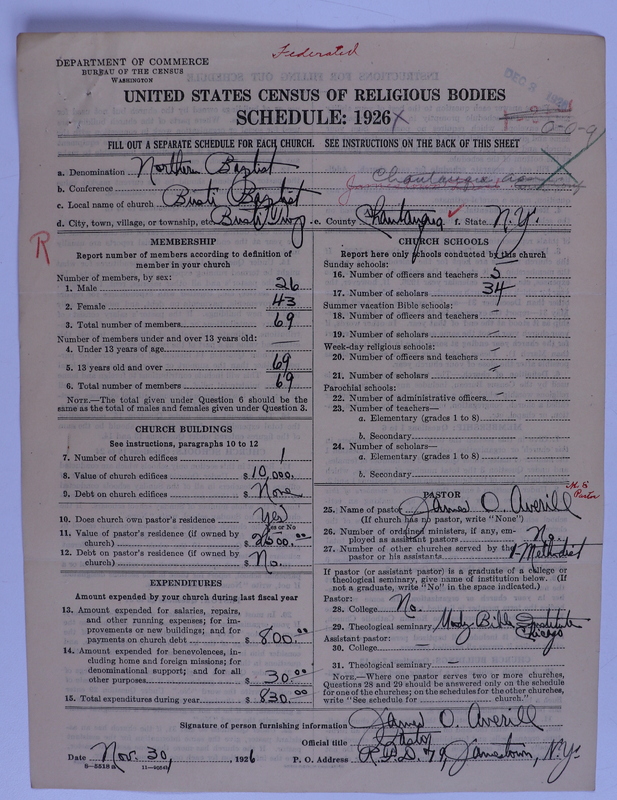 Federated
DEPARTMENT OF COMMERCE
BUREAU OF THE CENSUS
WASHINGTON
DEC 3 1926
UNITED STATES CENSUS OF RELIGIOUS BODIES
SCHEDULE: 1926
0-0-9
FILL OUT A SEPARATE SCHEDULE FOR EACH CHURCH. SEE INSTRUCTIONS ON THE BACK OF THIS SHEET
a. Denomination Northern Baptist
b. Conference Chautauqua
c. Local name of church Busti Baptist
d. City, town, village, or township, etc. Busti Twp e. County Chautauqua f. State N.Y.
R
MEMBERSHIP
Report number of members according to definition of
member in your church
Number of members, by sex:
1. Male 26
2. Female 43
3. Total number of members 69
Number of members under and over 13 years old:
4. Under 13 years of age —
5. 13 years old and over 69
6. Total number of members 69
NOTE.—The total given under Question 6 should be
the same as the total of males and females given under Question 3.
CHURCH BUILDINGS
See instructions, paragraphs 10 to 12
7. Number of church edifices 1
8. Value of church edifices $ 10,000.
9. Debt on church edifices $ None
10. Does church own pastor's residence Yes
Yes or No
11. Value of pastor's residence (if owned by
church) $ 2500.00
12. Debt on pastor's residence (if owned by
church) $ No.
EXPENDITURES
Amount expended by your church during last fiscal year
13. Amount expended for salaries, repairs,
and other running expenses; for im-
provements or new buildings; and for
payments on church debt $ 800.00
14. Amount expended for benevolences, in-
cluding home and foreign missions; for
denominational support; and for all
other purposes $ 30.00
15. Total expenditures during year $ 830.00
CHURCH SCHOOLS
Report here only schools conducted by this church
Sunday schools:
16. Number of officers and teachers 5
17. Number of scholars 34
Summer vacation Bible schools:
18. Number of officers and teachers —
19. Number of scholars —
Week-day religious schools:
20. Number of officers and teachers —
21. Number of scholars —
Parochial schools:
22. Number of administrative officers —
23. Number of teachers—
a. Elementary (grades 1 to 8)
b. Secondary
24. Number of scholars—
a. Elementary (grades 1 to 8)
b. Secondary
PASTOR
M.E. Pastor
25. Name of pastor James O. Averill
(If church has no pastor, write "None")
26. Number of ordained ministers, if any, em-
ployed as assistant pastors No.
27. Number of other churches served by the
pastor or his assistants 1 Methodist
If pastor (or assistant pastor) is a graduate of a college or
theological seminary, give name of institution below. (If
not a graduate, write "No" in the space indicated.)
Pastor:
28. College No.
29. Theological seminary Mody Bible Institute Chicago
Assistant pastor:
30. College —
31. Theological seminary —
NOTE.—Where one pastor serves two or more churches,
Questions 28 and 29 should be answered only on the schedule
for one of the churches; on the schedules for the other churches,
write "See schedule for church."
Signature of person furnishing information James O. Averill
Official title Pastor
Date Nov. 30, 1926 P. O. Address R.F.D. 79, Jamestown, N.Y.
8—5518 a